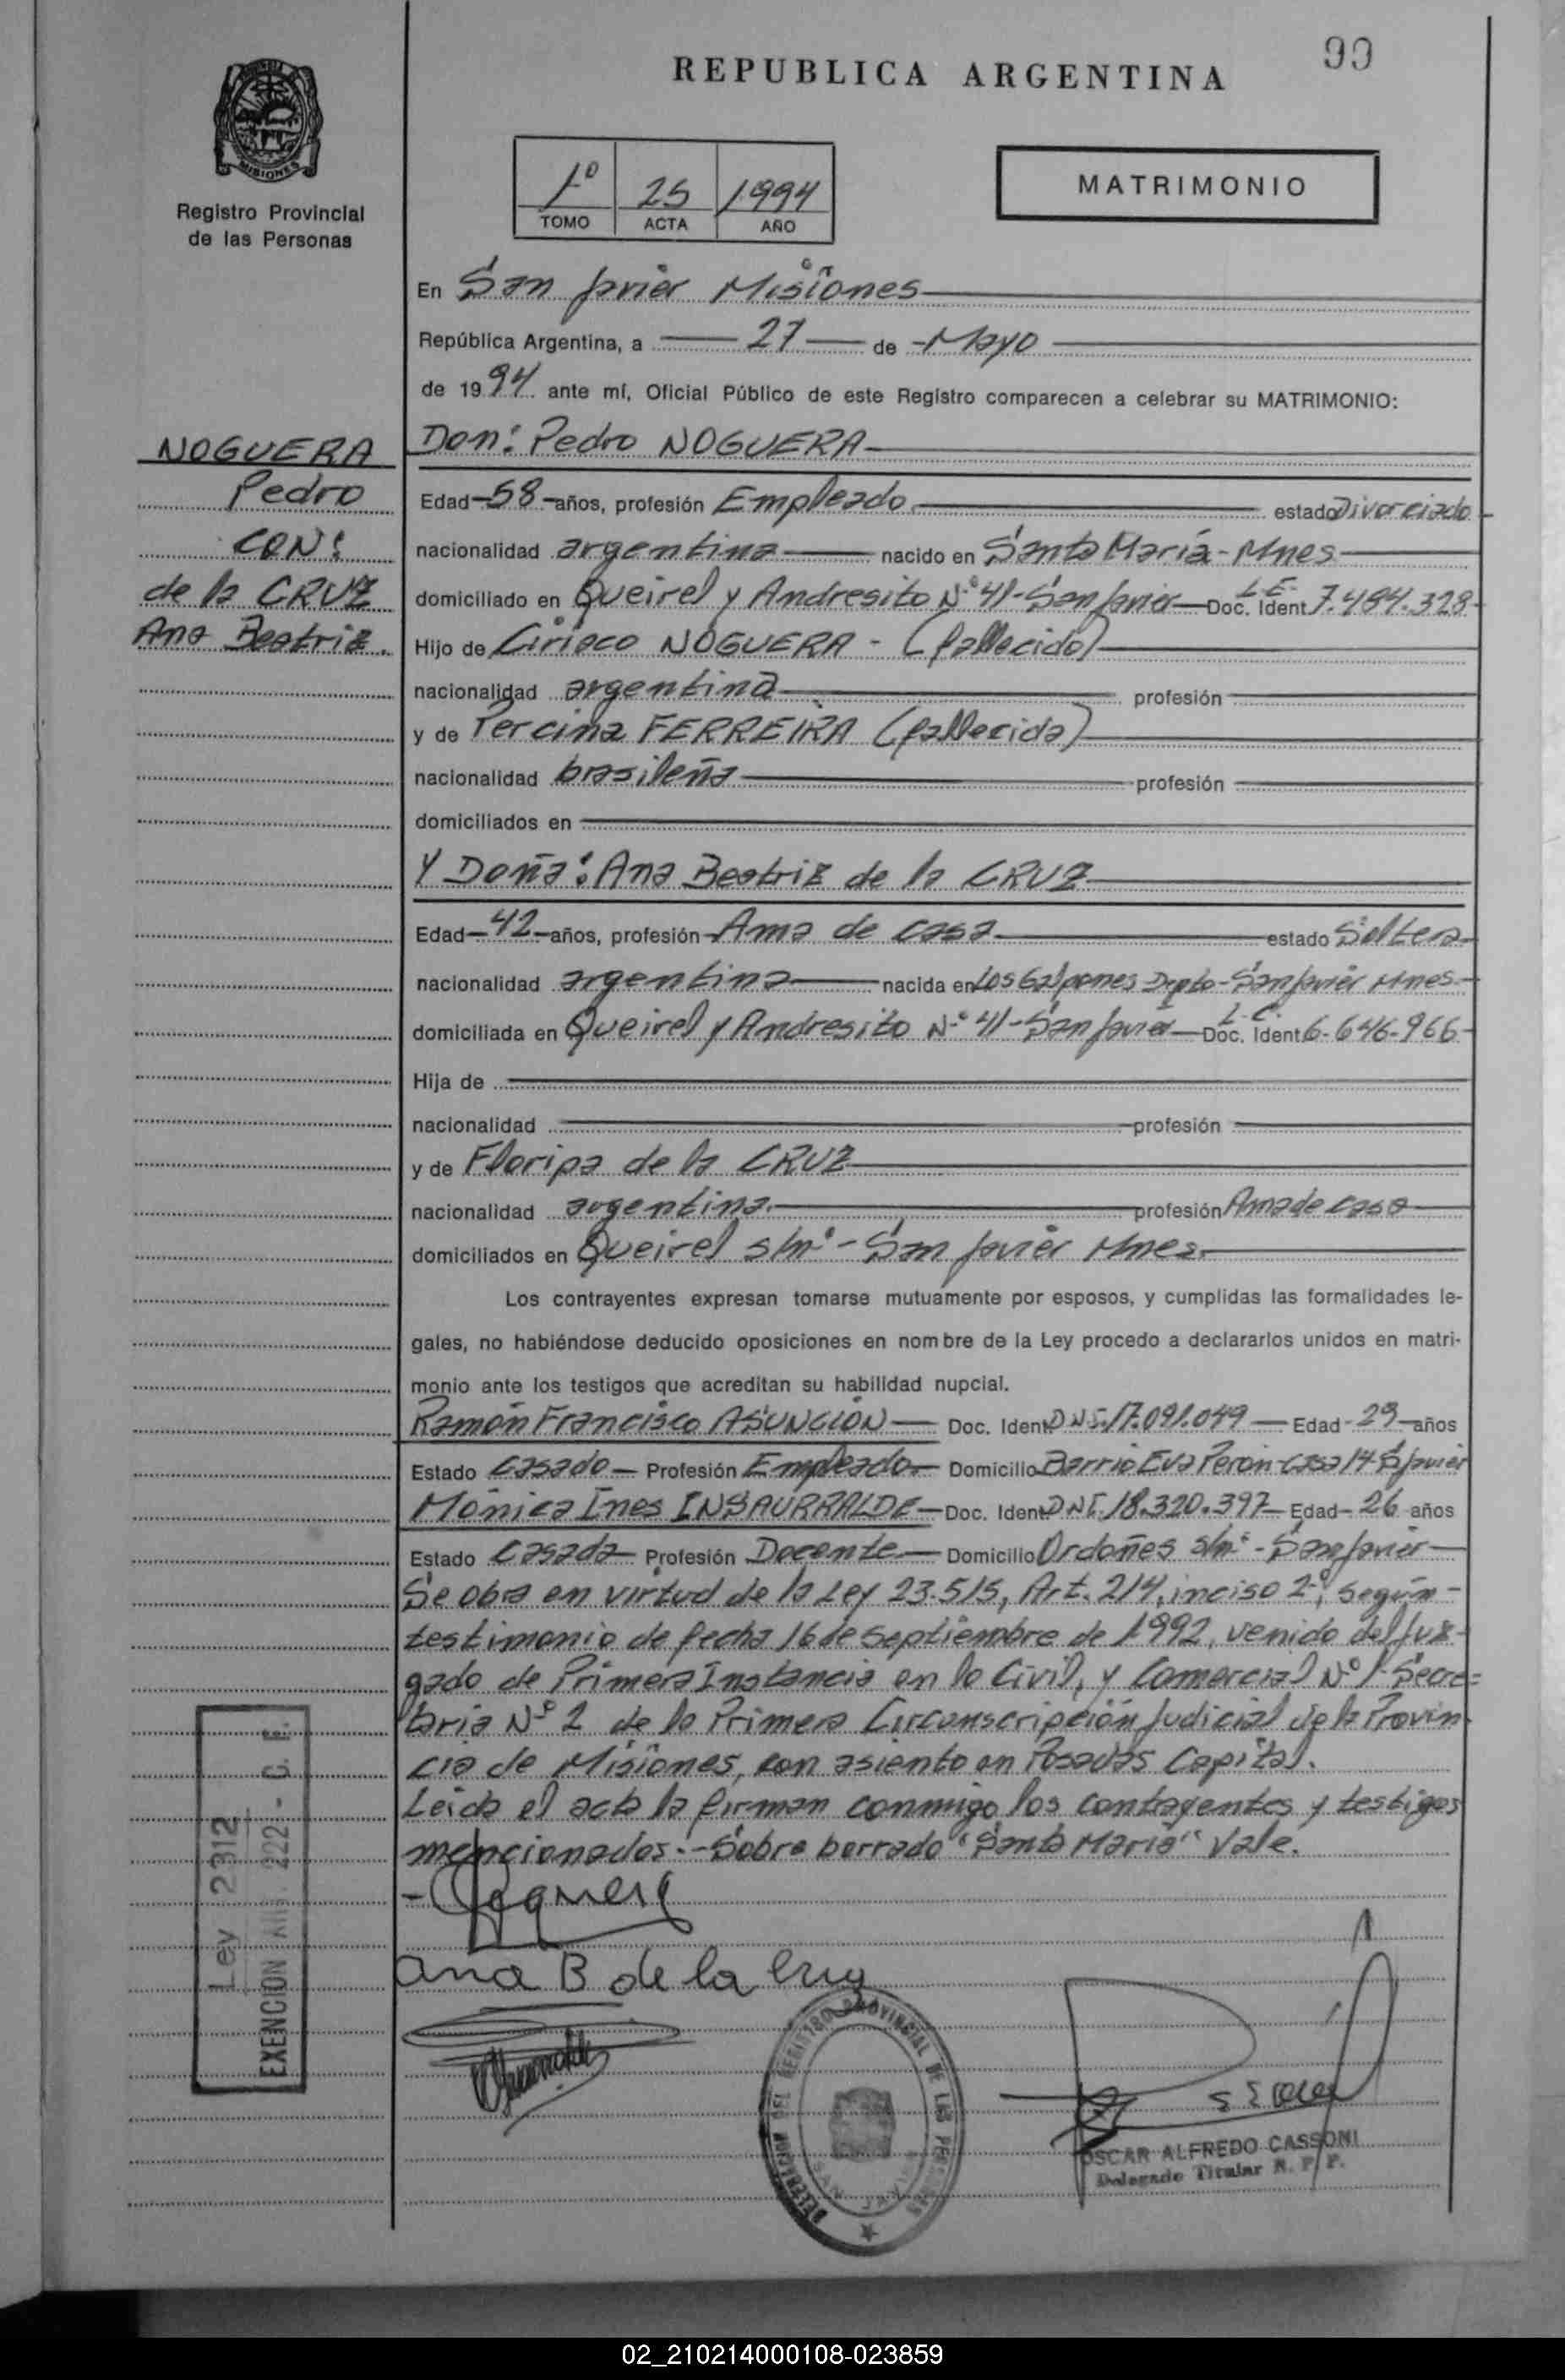 99
REPUBLICA ARGENTINA
MISIONES
Registro Provincial
de las Personas
1º 25 1994
TOMO ACTA AÑO
MATRIMONIO
En San Javier Misiones
República Argentina, a 27 de Mayo
de 1994 ante mí, Oficial Público de este Registro comparecen a celebrar su MATRIMONIO:
NOGUERA
Pedro
CON:
de la CRUZ
Ana Beatriz.
Don: Pedro NOGUERA
Edad 58 años, profesión Empleado estado Divorciado
nacionalidad argentina nacido en Santa María - Mnes
domiciliado en Queirel y Andresito Nº 41 - San Javier L.E. Doc. Ident 7.484.328
Hijo de Ciriaco NOGUERA - (fallecido)
nacionalidad argentina profesión
y de Percina FERREIRA (fallecida)
nacionalidad brasileña profesión
domiciliados en
Y Doña: Ana Beatriz de la CRUZ
Edad 42 años, profesión Ama de casa estado Soltera
nacionalidad argentina nacida en Los Galpones Depto - San Javier Mnes
domiciliada en Queirel y Andresito Nº 41 - San Javier L.C. Doc. Ident 6.646.966
Hija de
nacionalidad profesión
y de Floripa de la CRUZ
nacionalidad argentina profesión Ama de casa
domiciliados en Queirel s/nº - San Javier Mnes.
Los contrayentes expresan tomarse mutuamente por esposos, y cumplidas las formalidades le-
gales, no habiéndose deducido oposiciones en nombre de la Ley procedo a declararlos unidos en matri-
monio ante los testigos que acreditan su habilidad nupcial.
Ramón Francisco ASUNCIÓN Doc. Ident D.N.I. 17.091.049 Edad 29 años
Estado Casado Profesión Empleado Domicilio Barrio Eva Perón casa 14 S/Javier
Mónica Ines INSAURRALDE Doc. Ident DNI. 18.320.397 Edad 26 años
Estado Casada Profesión Docente Domicilio Ordoñes s/nº - San Javier
Se obra en virtud de la Ley 23.515, Art. 214, inciso 2º, según
testimonio de fecha 16 de septiembre de 1992, venido del Juz-
gado de Primera Instancia en lo Civil, y Comercial Nº 1 - Secre-
taria Nº 2 de la Primera Circunscripción Judicial de la Provin-
cia de Misiones, con asiento en Posadas Capital.
Leída el acta la firman conmigo los contayentes y testigos
mencionados.- Sobre borrado "Santa María" Vale.
Ley 2312
EXENCION Art. 222 - C. F.
Ana B de la Cruz
DELEGACION DEL REGISTRO PROVINCIAL DE LAS PERSONAS
SAN JAVIER
OSCAR ALFREDO CASSONI
Delegado Titular R. P. P.
02_210214000108-023859